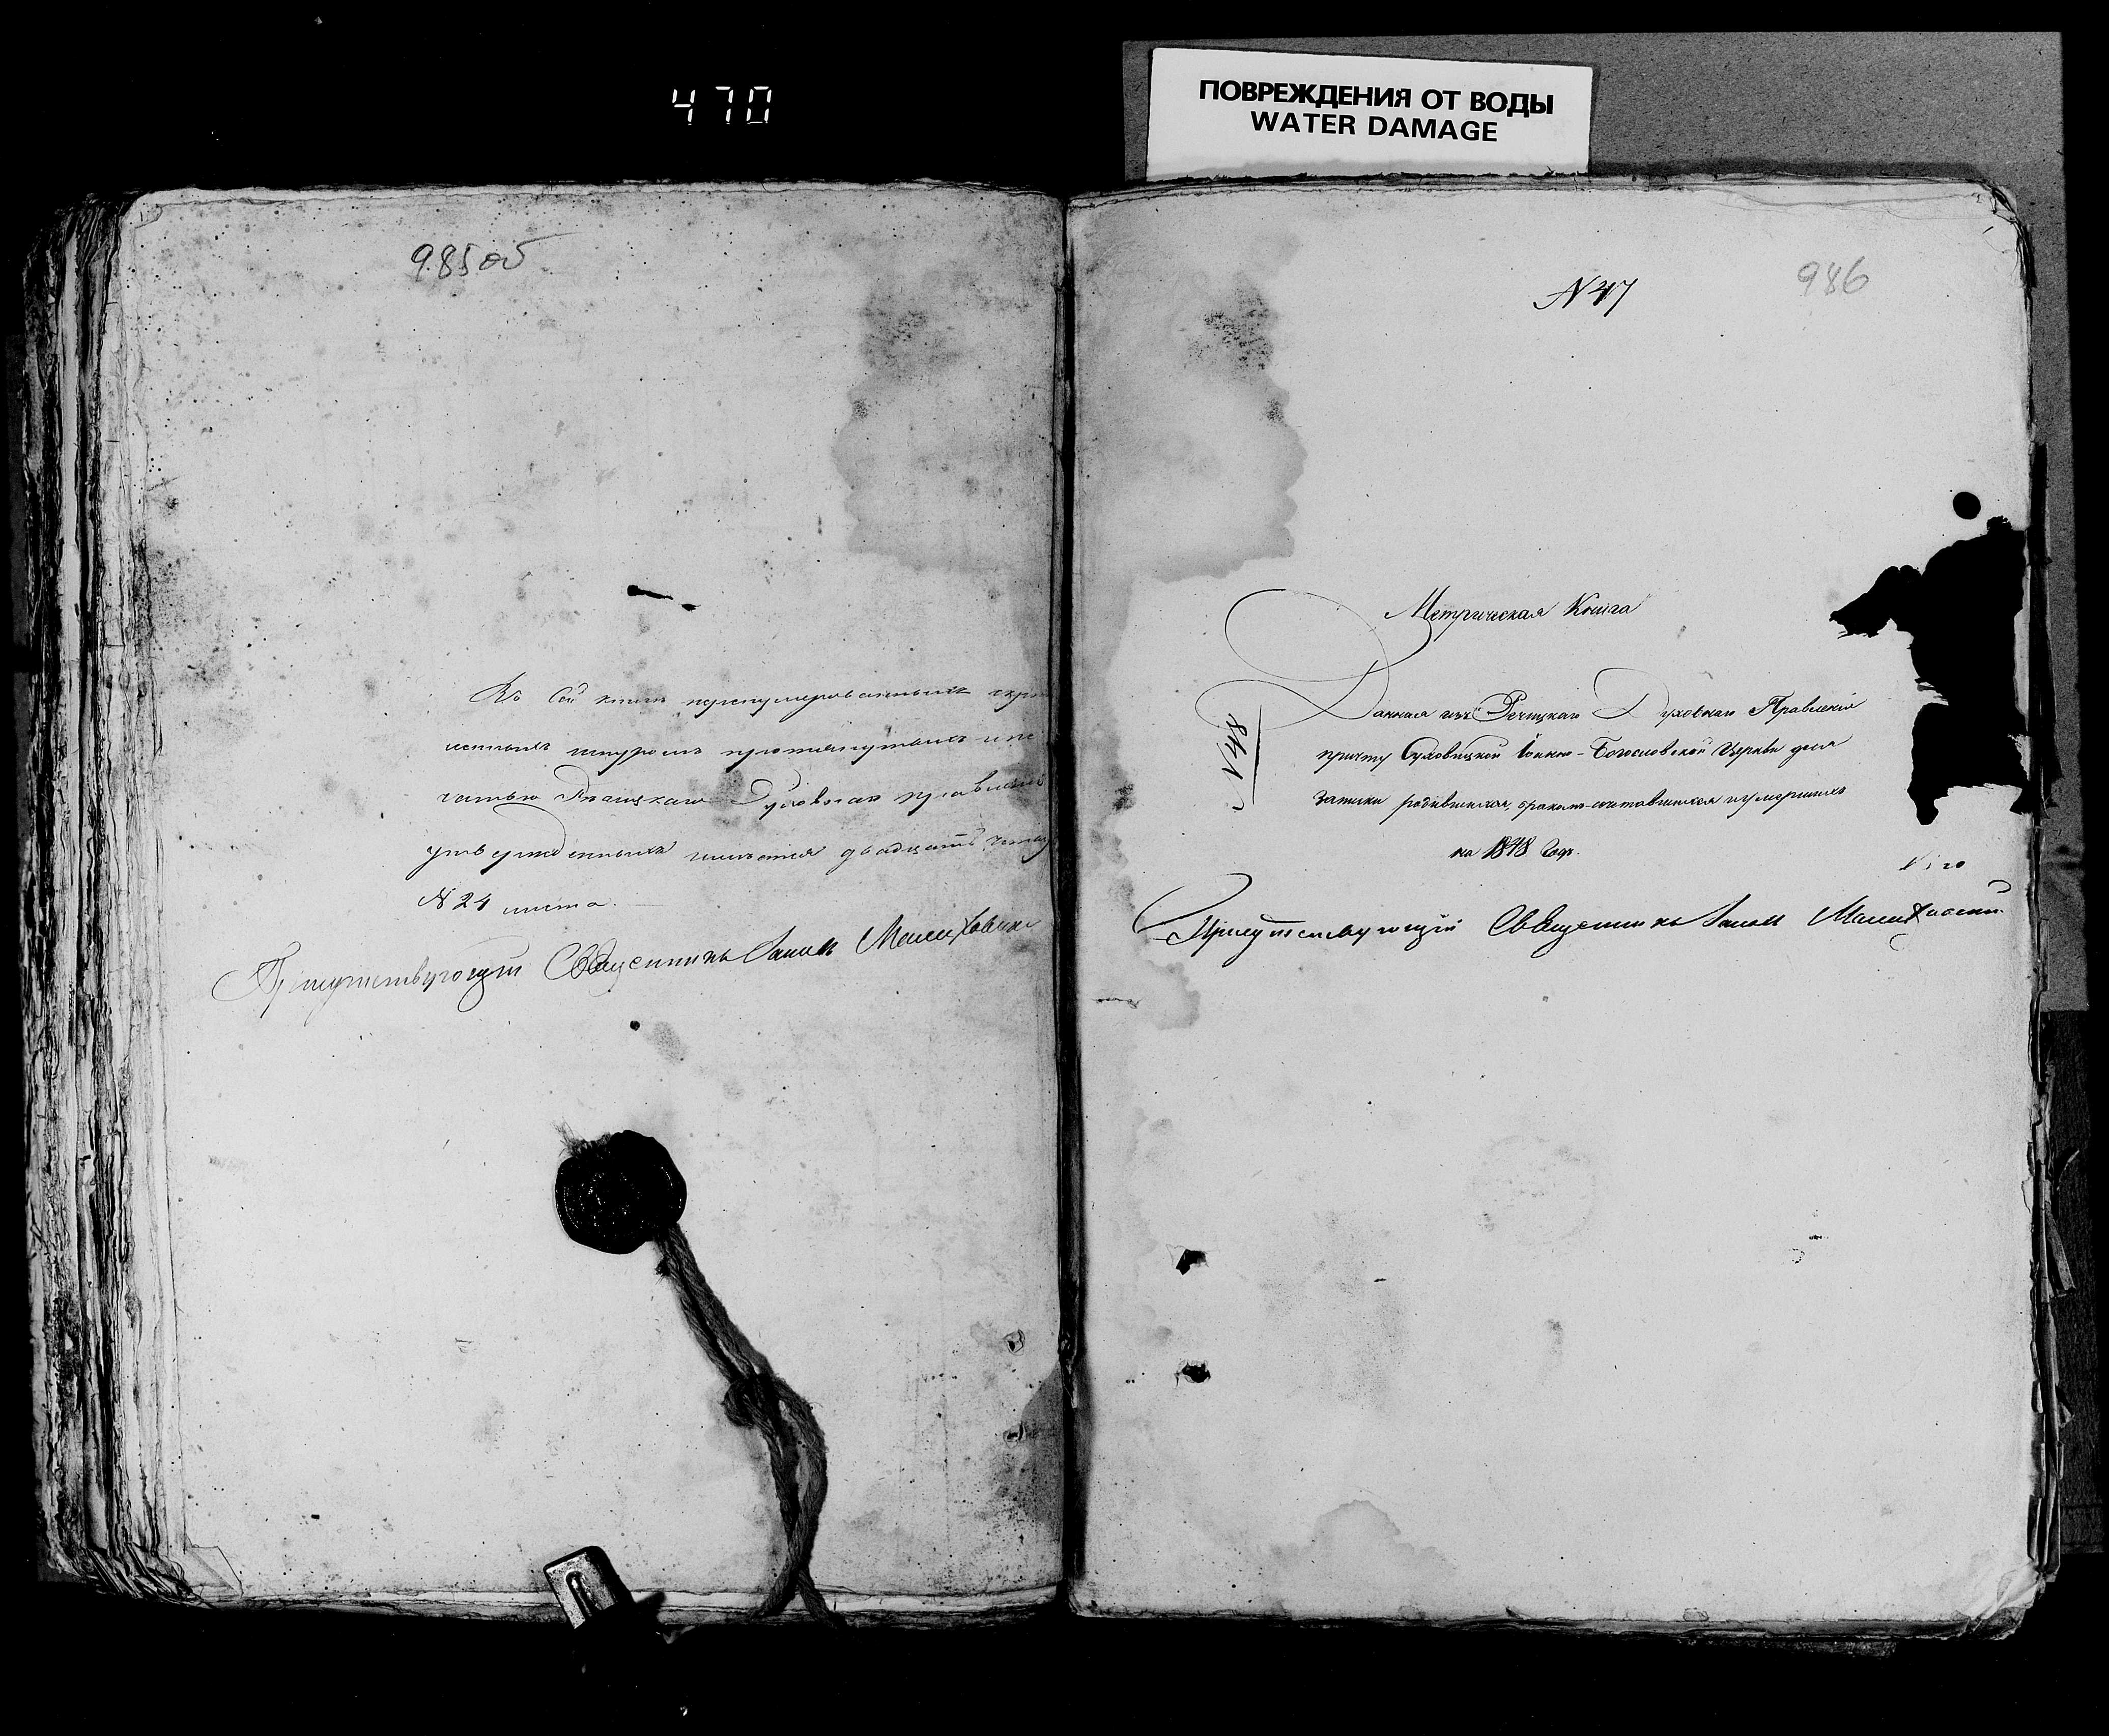 470
ПОВРЕЖДЕНИЯ ОТ ВОДЫ
WATER DAMAGE
985об
Въ сей книгѣ перенумерованныхъ скрѣ
пленныхъ шнуромъ протянутыхъ и пе
чатью Рѣчицкаго Духовнаго правленія
утвержденныхъ имѣется двадцать четыре
N 24 листа.
Присутствующій Священникъ
986
N 47
Метрическая Книга
Данная изъ Рѣчицкаго Духовнаго Правленія
причту Суховицкой Іоанно-Богословской Церкви для
записки родившихся, бракомъ сочетавшихся и умершихъ
на 1848 Годъ.
N 48
Присутствующій Священникъ